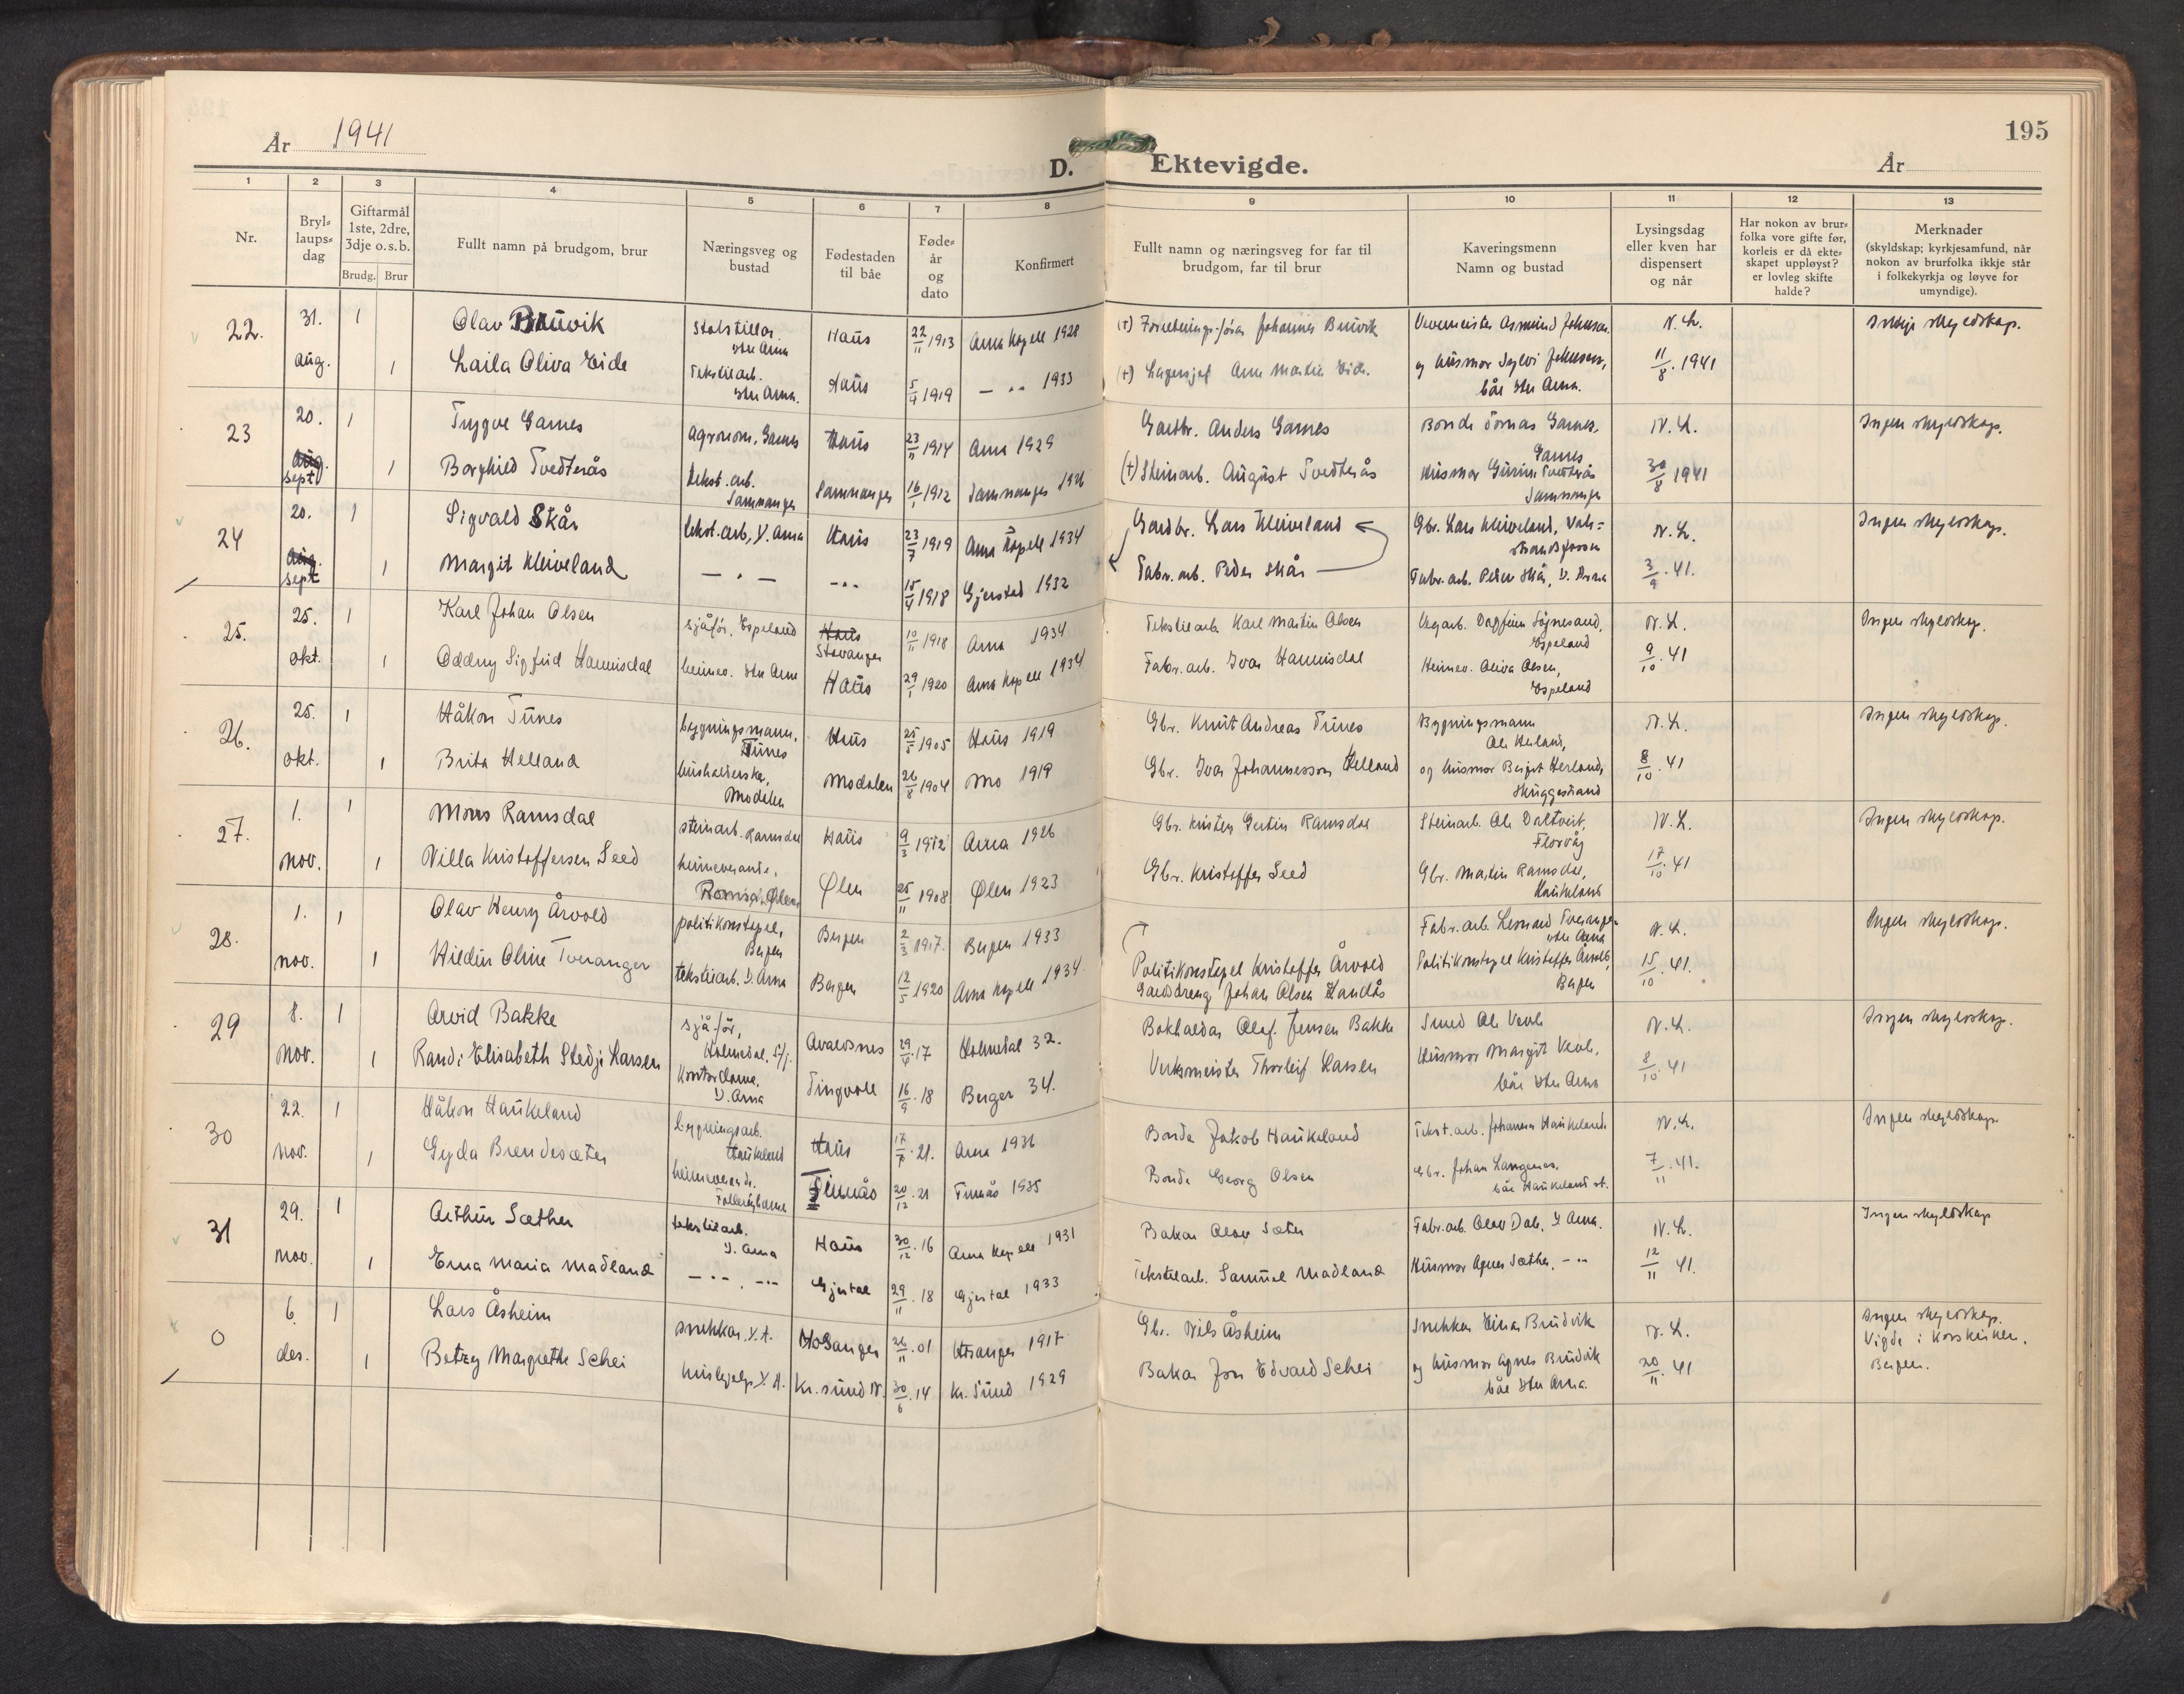 195
År 1941
D. Ektevigde.
År
1 2 3 4 5 6 7 8 9 10 11 12 13
Nr.
Bryl-
laups-
dag
Giftarmål
1ste, 2dre,
3dje o.s.b.
Brudg. Brur
Fullt namn på brudgom, brur
Næringsveg og
bustad
Fødestaden
til båe
Føde-
år
og
dato
Konfirmert
Fullt namn og næringsveg for far til
brudgom, far til brur
Kaveringsmenn
Namn og bustad
Lysingsdag
eller kven har
dispensert
og når
Har nokon av brur-
folka vore gifte før,
korleis er då ekte-
skapet uppløyst?
er lovleg skifte
halde?
Merknader
(skyldskap; kyrkjesamfund, når
nokon av brurfolka ikkje står
i folkekyrkja og løyve for
umyndige).
22. 31. 1 Olav Bruvik Haus 22/11 1913 Arna Kapell 1928 (+) Johannes Bruvik N. L. Ikkje skyldskap.
aug. 1 Laila Oliva Eide Tekstilarb. Ytre Arna. Haus 5/4 1919 1933 (+) Lagersjef Arne Martin Eide. og husmor Johnsen, båe Ytre Arna. 11/8 1941
23 20. 1 Trygve Garnes agronom, Garnes Haus 23/11 1914 Arna 1929 Gardbr. Anders Garnes Bonde Tomas Garnes, Garnes N. L. Ingen skyldskap.
aug. sept 1 Borghild Tvedterås tekst. arb. Samnanger Samnanger 16/1 1912 Samnanger 1926 (+) Steinarb. August Tvedterås Husmor Tvedterås Samnanger 30/8 1941
24 20. 1 Sigvald Skår tekst. arb, Y. Arna Haus 23/7 1919 Arna Kapell 1934 Gardbr. Lars Kleiveland Gbr. Lars Kleiveland, Vak-strandsfossen N. L. Ingen skyldskap.
aug. sept 1 Margit Kleiveland 15/4 1918 Gjerstad 1932 Fabr. arb. Peder Skår Fabr. arb. Peder Skår, Y. Arna 3/9. 41.
25. 25. 1 Karl Johan Olsen sjåfør, Espeland Haus Stavanger 10/11 1918 Arna 1934 Tekstilarb. Karl Martin Olsen Espeland N. L. Ingen skyldskap.
okt. 1 Oddny Sigfrid Hannisdal heimev. Ytre Arna Haus 29/1 1920 Arna Kapell 1934 Fabr. arb. Ivar Hannisdal Heimev. Oliva Olsen, Espeland 9/10. 41
26. 25. 1 Håkon Tunes bygningsmann, Tunes Haus 25/5 1905 Haus 1919 Gbr. Knut Andreas Tunes Bygningsmann Ole Herland, N. L. Ingen skyldskap.
okt. 1 Brita Helland hushalderske, Modalen Modalen 26/8 1904 Mo 1919 Gbr. Ivar Johannesson Helland og husmor Berget Herland, Skuggestrand 8/10. 41
27. 1. 1 Mons Ramsdal steinarb. Ramsdal Haus 9/3 1912 Arna 1926 Gbr. Kristen Gertin Ramsdal Steinarb. Ole Daltveit, Florvåg N. L. Ingen skyldskap.
nov. 1 Villa Kristoffersen Seed heimeverande, Ølen Ølen 25/11 1908 Ølen 1923 Gbr. Kristoffer Seed Gbr. Martin Ramsdal, Haukeland 17/10. 41
28. 1. 1 Olav Henry Årvold politikonstapel, Bergen Bergen 2/3 1917. Bergen 1933 Politikonstapel Kristoffer Årvold Fabr. arb. Leonard Tveranger Ytre Arna N. L. Ingen skyldskap.
nov. 1 Hildur Oline Tveranger tekstilarb. Y. Arna Bergen 12/5 1920 Arna Kapell 1934 Gardsdreng Johan Olsen Handås Politikonstapel Kristoffer Årvold, Bergen 15/10 41.
29 8. 1 Arvid Bakke sjåfør, Holmedal. Avaldsnes 29/4. 17 Holmedal 32. Bokhaldar Olaf Jensen Bakke Smed Ole N. L. Ingen skyldskap.
nov. 1 Randi Elisabeth Stedje Larsen Kontordame, Y. Arna Tingvoll 16/9. 18 Berger 34. Verksmeister Thorleif Larsen Husmor Margit båe Ytre Arna 8/10. 41
30 22. 1 Håkon Haukeland bygningsarb. Haukeland Haus 17/7. 21. Arna 1936 Bonde Jakob Haukeland Tekst. arb. Johannes Haukeland. N. L. Ingen skyldskap.
nov. 1 Gyda Brendesæter heimeverande. Fimås 20/12. 21 1935 Bonde Georg Olsen Gbr. Johan båe Haukeland st. 7/11. 41.
31 29. 1 Arthur Sæther tekstilarb. Y. Arna Haus 30/12. 16 Arna Kapell 1931 Bakar Olav Sæter Fabr. arb. Olav Dale, Y. Arna. N. L. Ingen skyldskap
nov. 1 Erna Maria Madland Gjestal 29/11. 18 Gjestal 1933 Tekstilarb. Samuel Madland Husmor Agnes Sæther. 12/11 41.
0 6. 1 Lars Åsheim snekkar. Y. A. 26/11. 01 1917 Gbr. Nils Åsheim Snekkar Brudvik N. L. Ingen skyldskap. Vigde i Korskirken, Bergen.
des. 1 Betzy Margrethe Schei hushjelp, Y. A. Kr. sund N. 30/6. 14 Kr. Sund 1929 Bakar Jon Edvard Schei og husmor Agnes Bruvik båe Ytre Arna. 20/11. 41